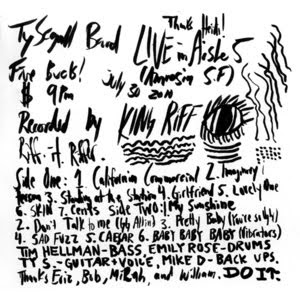 Ty Segall Band
Thanks Heidi!
LIVE in Aisle 5
(Amnesia S.F)
Five Buck!
$ 9pm
July 30 2011
Recorded by KING RIFF
Side One: 1. California Commercial 2. Imaginary
Person 3. Standing at the Station 4. Girlfriend 5. Lovely One
6. SKIN 7. Cents Side TWO: 1. My Sunshine
2. Don't Talk to me (GG Allin) 3. Pretty Baby
4. SAD FUZZ 5. CAESAR 6. BABY BABY BABY (Vibrators)
TIM HELLMAN - BASS EMILY ROSE - DRUMS
TY S. - GUITAR + VOICE, MIKE D - BACK UPS.
Thanks Eric, Bob, and William. DO IT.